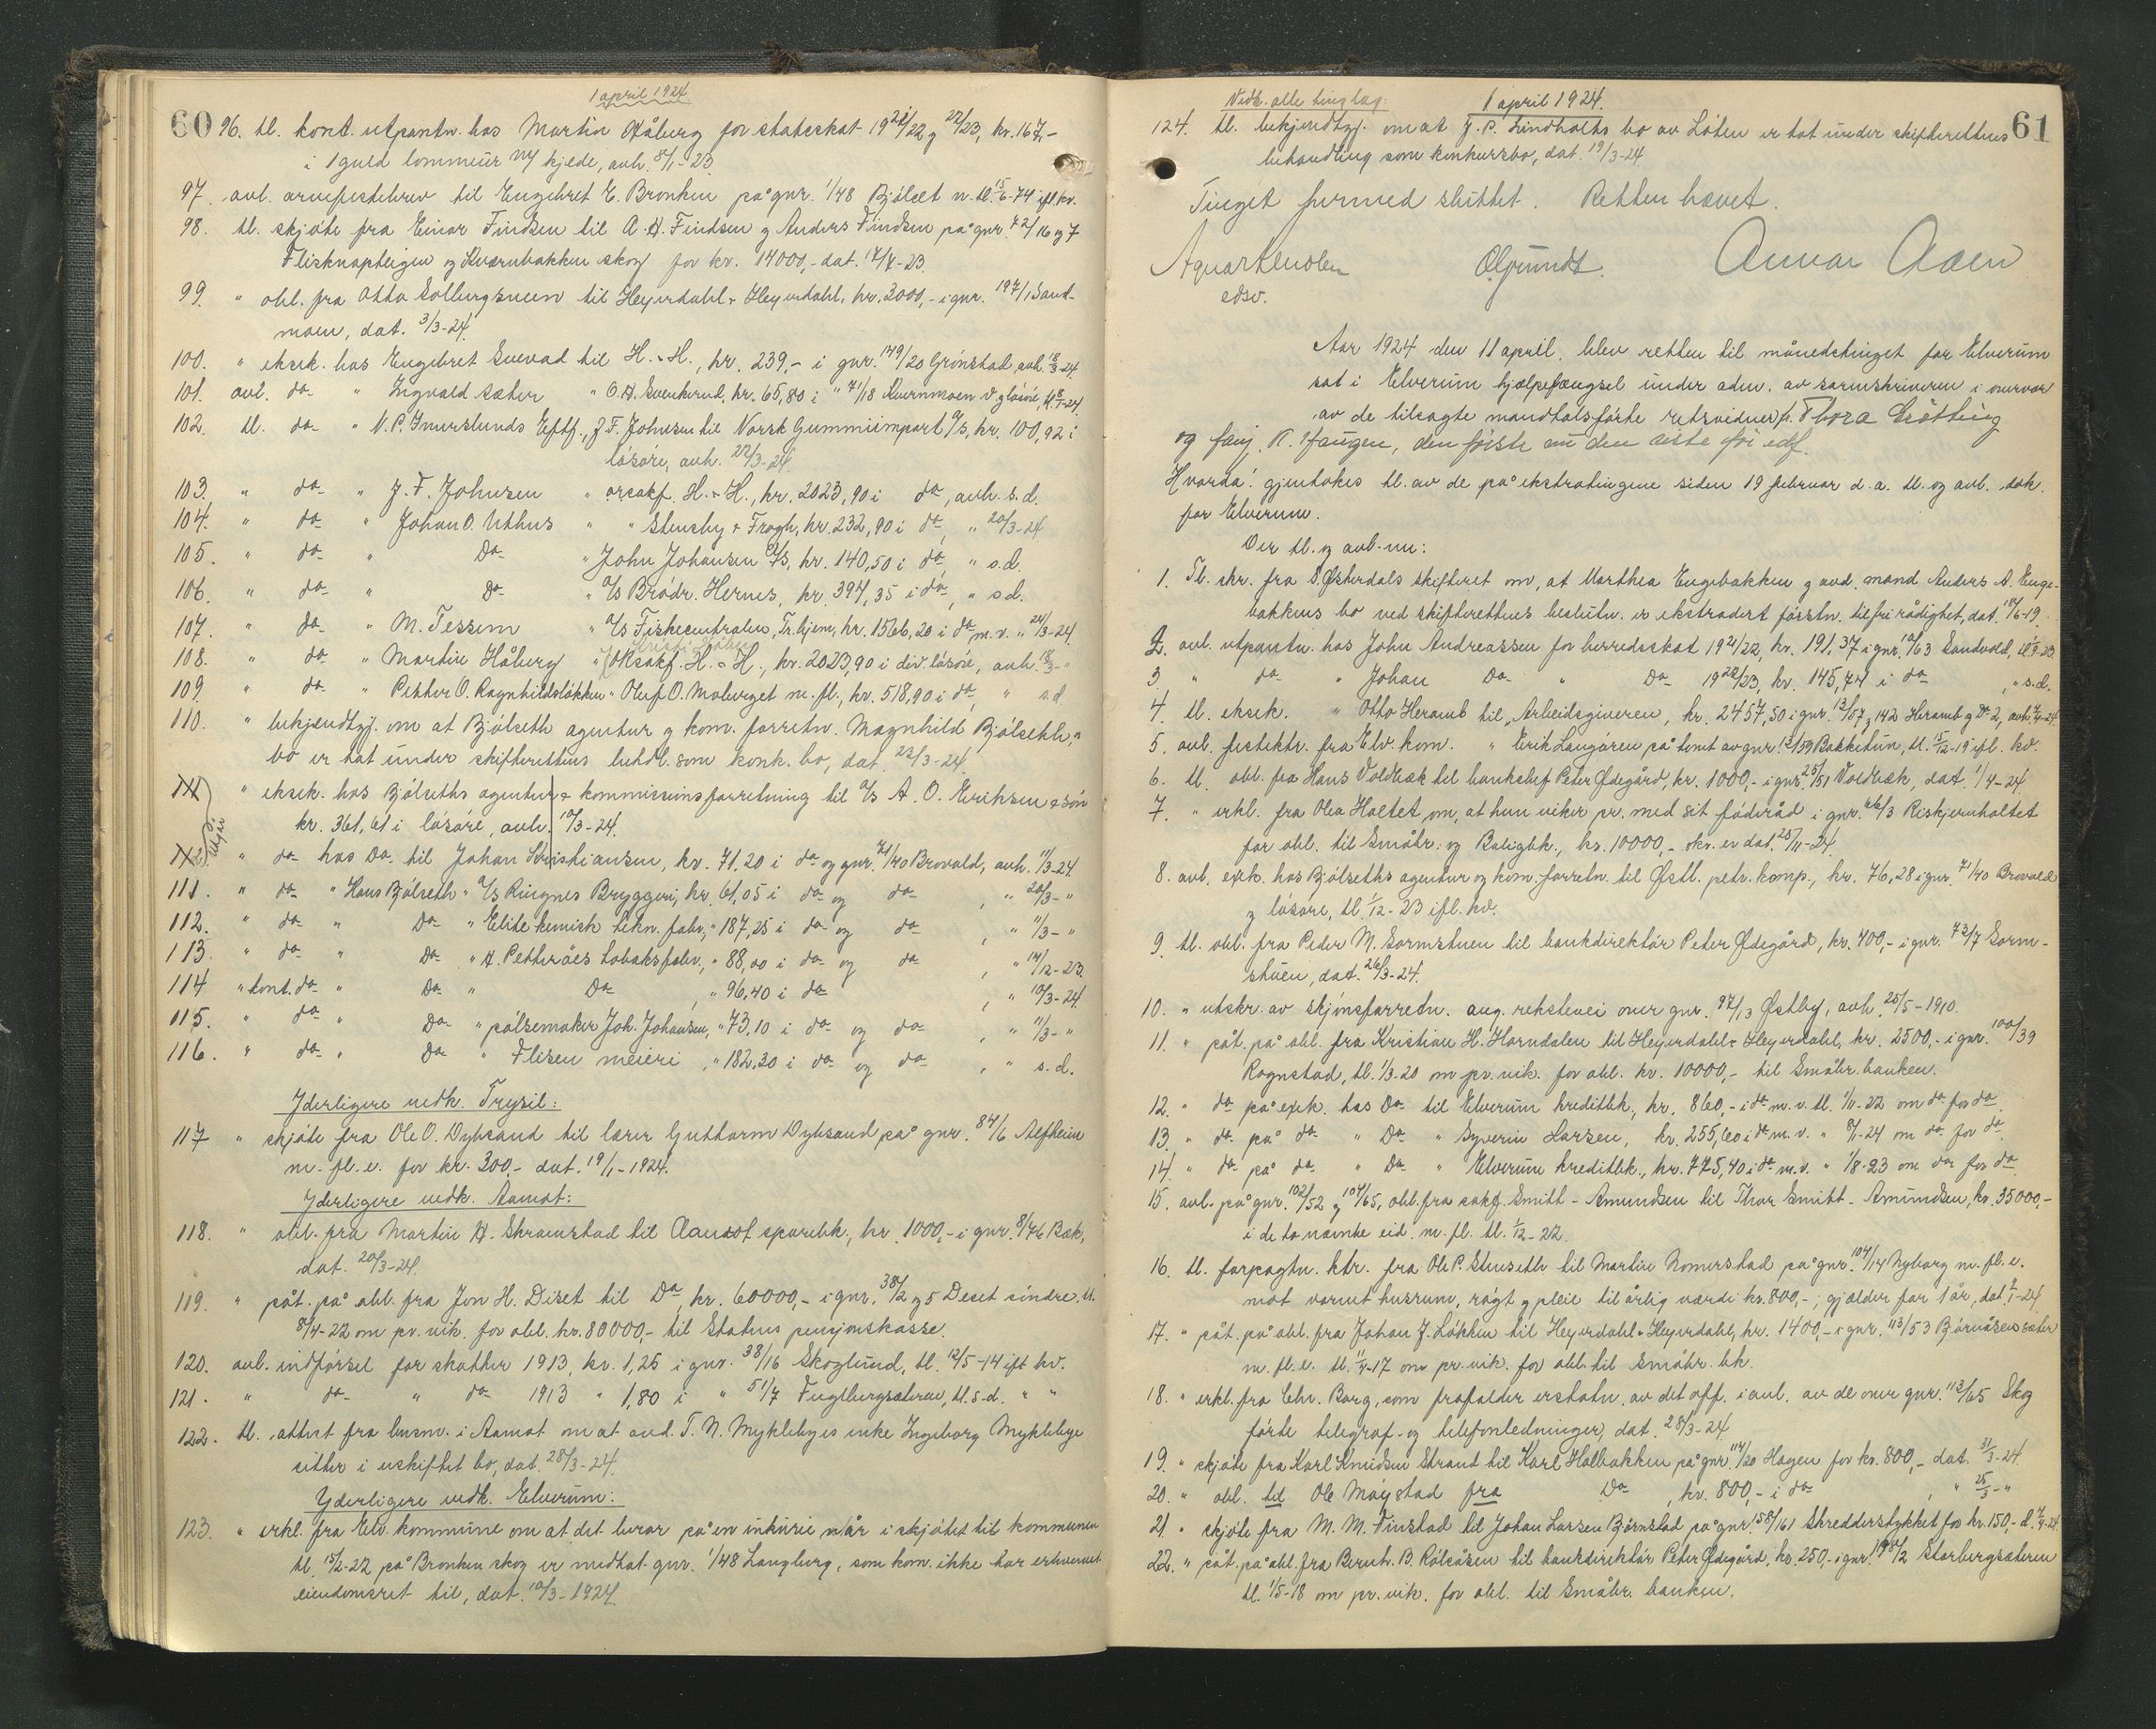 1 april 1924
60
96. tl. kont. utpantn. hos Martin Håberg for statsskat 19 21/22 g 22/23, kr. 167,-
i 1 guld lommeur m/ kjede, avh. 8/1-23.
97. avl. arvefestebrev til Engebret E. Bronken på gnr. 1/48 Bjölset n. tl. 15/6-74 ifl. kv.
98. tl. skjöte fra Einar Findsen til A. H. Findsen g Anders Findsen på gnr. 72/16 og 7
Flisknapteigen og Kvernbakken skog for kr. 14000,- dat. 17/4-23.
99. " obl. fra Otto Solbergmoen til Heyerdahl & Heyerdahl, kr. 3000,- i gnr. 197/1 Sand-
moen, dat. 3/3-24.
100. " eksek. hos Engebret Svevad til H. & H., kr. 239,- i gnr. 149/20 Grönstad, avh. 18/3-24.
101. avl. do " Ingvald Sæter " O. H. Svenkerud, kr. 65,80 i " 71/18 Kvernmoen v glöine, tl. 8/1-24.
102. tl. do " N. P. Imerslunds Eftf., J. F. Johnsen til Norsk Gummiimport A/S, kr. 100,92 i
lösöre, avh. 22/3-24.
103. " do " J. F. Johnsen " orsakf. H. & H., kr. 2023,90 i do, avh. s.d.
104. " do " Johan O. Uthus " " Stensby & Frogh, kr. 232,90 i do, " 20/3-24
105. " do " Do " John Johansen A/S, kr. 140,50 i do, " s.d.
106. " do " Do " A/S Brödr. Hernes, kr. 394,35 i do, " s.d.
107. " do " M. Tessem " A/S Fiskecentralen, Tr.hjem, kr. 1566,20 i do m.v. " 24/3-24.
108. " do " Martin Håberg " O.R.sakf. H. & H., kr. 2023,90 i div. lösöre, avh. 18/3-"
109. " do " Petter O. Ragnhildslökken " Oluf O. Moberget m. fl., kr. 518,90 i do, " s.d.
110. " bekjendtgj. om at Bjölseth agentur g kom. forretn. Magnhild Bjölseth,"
bo er tat under skifterettens behdl. som konk. bo, dat. 22/3-24.
111 " eksek. hos Bjölseths agentur & kommissionsforretning til A/S A. O. Eriksen & sön
kr. 361,61 i lösöre, avh. 10/3-24.
Utgår
112 " do hos Do til Johan Kristiansen, kr. 71,20 i do og gnr. 71/40 Brovold, avh. 11/3-24
111. " do " Hans Bjölseth " A/S Ringnes Bryggeri, kr. 61,05 i do og do, " 20/3-"
112. " do " Do " Elite kemisk tekn. fabr., " 187,25 i do og do, " 11/3-"
113. " do " Do " H. Petteröes tobaksfabr., " 88,00 i do og do, " 14/12-23.
114 " kont. do " Do " Do, " 96,40 i do, " 10/3-24.
115. " do " Do " pölsemaker Joh. Johansen, " 73,10 i do og do, " 11/3-"
116. " do " Do " Flisen meieri, " 182,30 i do og do, " s.d.
Yderligere vedk. Trysil:
117 " skjöte fra Ole O. Dybsand til lærer Guttorm Dybsand på gnr. 84/6 Alfheim
m. fl. e. for kr. 300,- dat. 19/1-1924.
Yderligere vedk. Aamot:
118. " obl. fra Martin H. Skramstad til Aamot sparebk., kr. 1000,- i gnr. 8/76 Bæk,
dat. 20/3-24.
119. " påt. på obl. fra Jon H. Diset til Do, kr. 60000,- i gnr. 38/2 g 5 Deset söndre, tl.
8/4-22 om pr. vik. for obl. kr. 80000,- til Statens pensjonskasse.
120. avl. indförsel for skatter 1913, kr. 1,25 i gnr. 38/16 Skoglund, tl. 12/5-14 ift kv.
121. " do " do 1913 " 1,80 i " 51/7 Fuglbergsæteren, tl. s.d. " "
122. tl. attest fra lensm. i Aamot om at avd. T. N. Myklebyes enke Ingeborg Myklebye
sitter i uskiftet bo, dat. 28/3-24.
Yderligere vedk. Elverum:
123. " erkl. fra Elv. kommune om at det beror på en inkurie når i skjötet til kommunen
tl. 15/2-22 på Bronken skog er medtat gnr. 1/48 Langberg, som kom. ikke har erhvervet
eiendomsret til, dat. 10/3-1924.
Vedk. alle tinglag.
1 april 1924.
61
124. tl. bekjendtgj. om at J. P. Lindholts bo av Löten er tat under skifterettens
behandling som konkursbo, dat. 19/3-24
Tinget hermed sluttet. Retten hævet.
edsv.
Aar 1924 den 11 april, blev retten til månedstinget for Elverum
sat i Elverum hjælpefængsel under adm. av sorenskriveren i overvær
av de tilsagte mandtalsförte retsvidner fr. Thora Grötting
og fanj. R. Haugen, den förste nu den siste för edf.
Hvorda: gjentokes tl. av de på ekstratingene siden 19 februar d.a. tl. og avl. dok.
for Elverum.
Der tl. og avl. nu:
1. Tl. skr. fra S. Østerdals skifteret om, at Marthea Engebakken g avd. mand Anders A. Enge-
bakkens bo ved skifterettens beslutn. er ekstradert förstn. til fri rådighet, dat. 17/6-19.
2. avl. utpantn. hos John Andreassen for herredsskat 19 21/22, kr. 191,37 i gnr. 10/63 Sandvold, tl. 1/9-23.
3 " do " Johan Do " Do 19 22/23, kr. 145,74 i do, " s.d.
4. tl. eksek. " Otto Heramb til "Arbeidsgiveren, kr. 2457,50 i gnr. 13/57 g 142 Heramb g Do 2, avh. 4/4-24
5. avl. festektr. fra Elv. kom. " Erik Langåren på tomt av gnr. 13/59 Bakketun, tl. 15/12-19 ifl. kv.
6. tl. obl. fra Hans Voldbæk til banksjef Peter Ødegård, kr. 1000,- i gnr. 25/51 Voldbæk, dat. 1/4-24
7. " erkl. fra Olea Holtet om, at hun viker pr. med sit föderåd i gnr. 66/3 Reskjemholtet
for obl. til Småbr. og Boligbk., kr. 10000,- skr. er dat. 25/11-24.
8. avl. exek. hos Bjölseths agentur og kom. forretn. til Østl. petr. komp., kr. 76,28 i gnr. 71/40 Brovold
g lösöre, tl. 1/12-23 ifl. kv.
9. tl. obl. fra Peder M. Sormstuen til bankdirektör Peter Ødegård, kr. 400,- i gnr. 73/7 Sorm-
stuen, dat. 26/3-24.
10. " utskr. av skjönsforretn. ang. rekstevei over gnr. 97/13 Østby, avh. 25/5-1910.
11. " påt. på obl. fra Kristian H. Horndalen til Heyerdahl & Heyerdahl, kr. 2500,- i gnr. 100/39
Rognstad, tl. 1/3-20 om pr. vik. for obl. kr. 10000,- til Småbr. banken.
12. " do på exek. hos Do til Elverum kreditbk., kr. 860,- i do m.v. tl. 1/11-22 om do for do.
13. " do på do " Do " Syverin Larsen, kr. 255,60 i do m.v. " 8/1-24 om do for do.
14. " do på do " Do " Elverum kreditbk., kr. 775,40 i do m.v. " 1/8-23 om do for do.
15. avl. på gnr. 102/52 g 104/65, obl. fra sakf. Smitt-Amundsen til Thor Smitt-Amundsen, kr. 35000,-
i de to nævnte eid. m. fl. tl. 1/12-22.
16. tl. forpagtn. ktr. fra Ole P. Stenseth til Martin Nomerstad på gnr. 104/14 Nyborg m. fl. e.
mot varmt husrum, rögt g pleie til årlig værdi kr. 800,-; gjælder for 1 år, dat. 2/1-24
17. " påt. på obl. fra Johan J. Lökken til Heyerdahl & Heyerdahl, kr. 1400,- i gnr. 113/53 Björnåsensæter
m. fl. e. tl. 11/4-17 om pr. vik. for obl. til Småbr. bk.
18. " erkl. fra Chr. Borg, som frafalder erstatn. av det off. i anl. av de over gnr. 113/65 Skog
förte telegraf- og telefonledninger, dat. 28/3-24
19. " skjöte fra Karl Knudsen Strand til Karl Holbakken på gnr. 114/20 Hagen for kr. 800,- dat. 31/3-24.
20. " obl. til Ole Møystad fra Do, kr. 800,- i do, " 25/3-"
21. " skjöte fra M. M. Finstad til Johan Larsen Björnstad på gnr. 158/161 Skredderstykket for kr. 150,- d. 7/4-24.
22. " påt. på obl. fra Bernh. B. Rölsåsen til bankdirektör Peter Ødegård, kr. 250,- i gnr. Storbergsæteren
tl. 1/5-18 om pr. vik. for obl. til Småbr. banken.